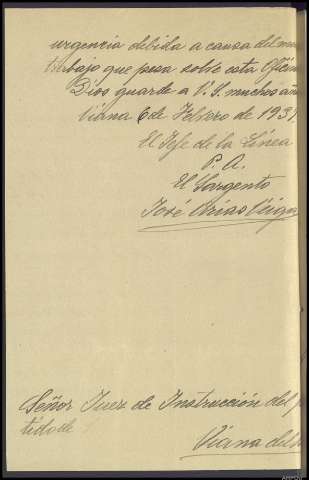 urgencia debida a causa del
trabajo que pesa sobre esta Oficin
Dios guarde a V. S. muchos añ
Viana 6 de Febrero de 193
El Jefe de la Línea
P. A.
El Sargento
José Arias Veiga
Señor Juez de Instrucción del p
tido de
Viana del